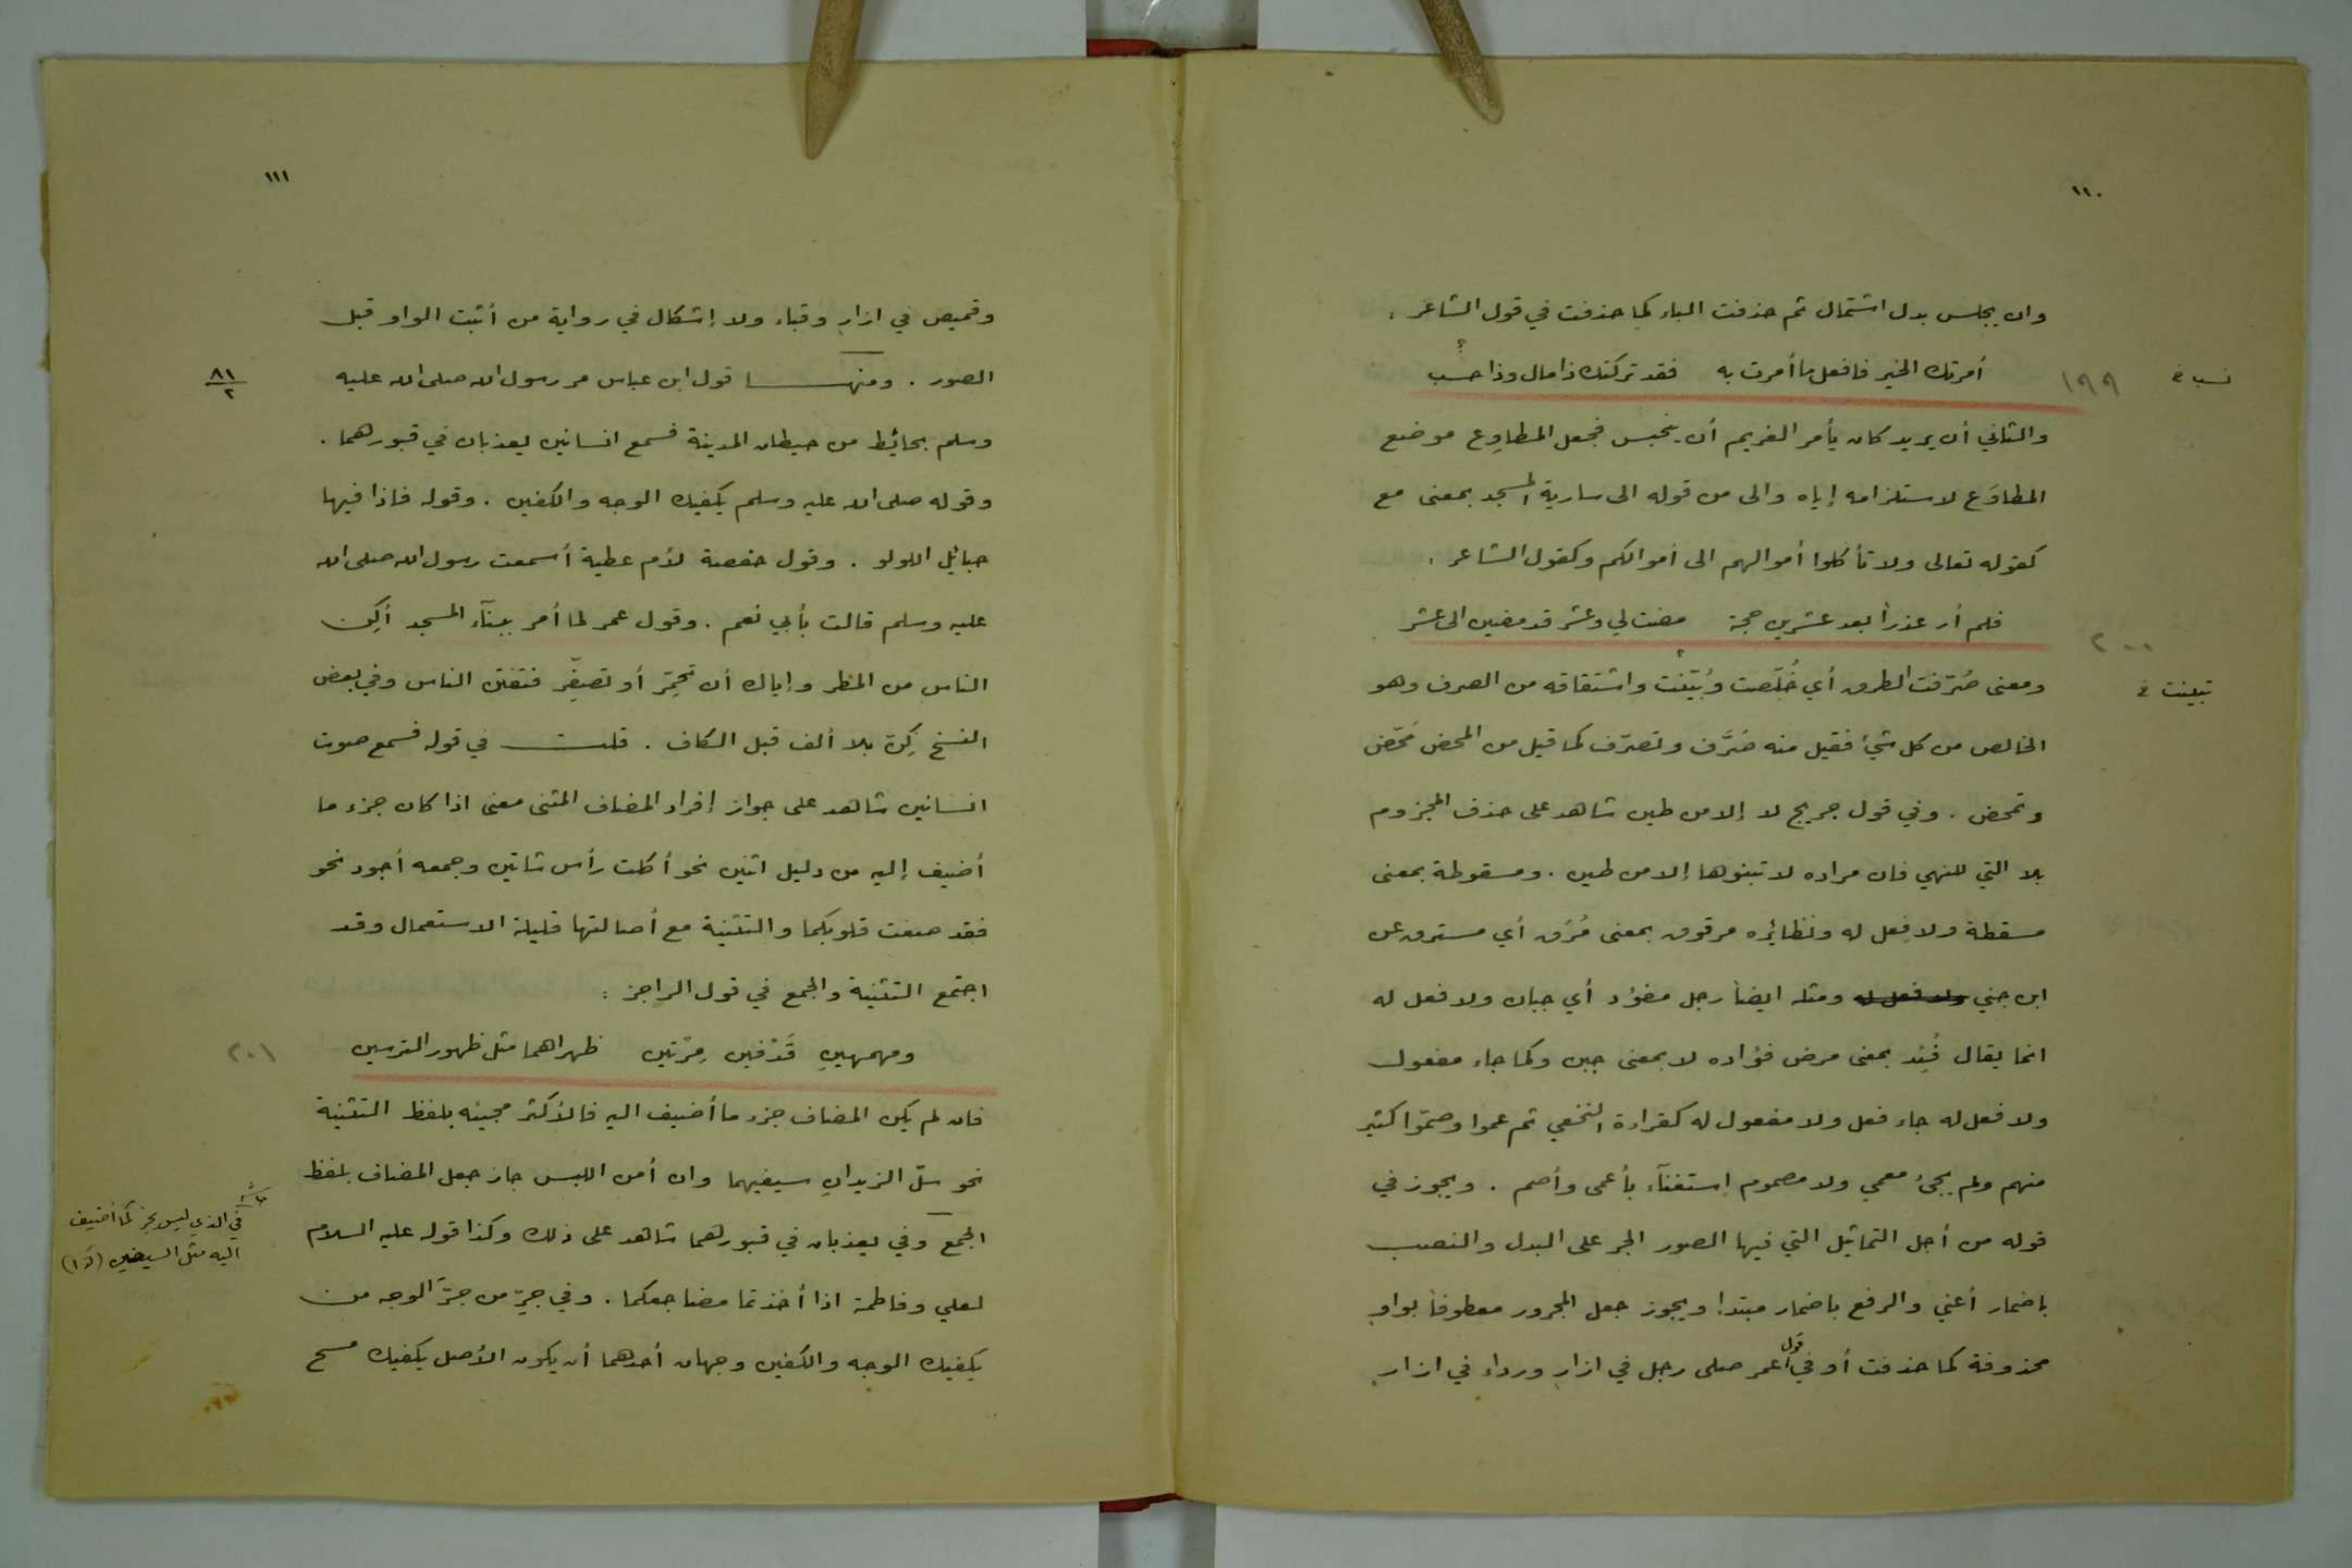 ١١٠
وان يجلس بدل اشتمال ثم حذفت الباء كما حذفت في قول الشاعر :
أمرتك الخير فافعل ما أمرت به فقد تركتك ذا مال وذا حسب
١٩٩
نسب خ
والثاني أن يريد كان يأمر الغريم أن ينحبس فجعل المطاوِع موضع
المطاوَع لاستلزامه إياه والى من قوله الى سارية المسجد بمعنى مع
كقوله تعالى ولا تأكلوا أموالهم الى أموالكم وكقول الشاعر :
فلم أر عذراً بعد عشرين حجة مضت لي وعشر قد مضين الى عشر
٢٠٠
ومعنى صُرّفت الطرق أي خُلّصت وبُيّنت واشتقاقه من الصرف وهو
تبينت خ
الخالص من كل شيء فقيل منه صَرَّف وتصرّف كما قيل من المحض مَحّض
وتمحض . وفي قول جريج لا إلا من طين شاهد على حذف المجزوم
بلا التي للنهي فان مراده لا تبنوها إلا من طين . ومسقوطة بمعنى
مسقطة ولا فِعل له ونظائره مرقوق بمعنى مُرَق أي مسترق عن
ابن جني ولا فعل له ومثله ايضاً رجل مفؤد أي جبان ولا فعل له
انما يقال فُئِد بمعنى مرض فؤاده لا بمعنى جبن وكما جاء مفعول
ولا فعل له جاء فعل ولا مفعول له كقراءة النخعي ثم عموا وصمّوا كثير
منهم ولم يجئ معمي ولا مصموم إستغنآء بأعمى وأصم . ويجوز في
قوله من أجل التماثيل التي فيها الصور الجر على البدل والنصب
باضمار أعني والرفع باضمار مبتدا ويجوز جعل المجرور معطوفاً بواو
محذوفة كما حذفت أو في قول عمر صلى رجل في ازار ورداء في ازار
١١١
وقميص في ازار وقباء ولا إشكال في رواية من أثبت الواو قبل
الصور . ومنها قول ابن عباس مر رسول الله صلى الله عليه
٨١
٢
وسلم بحائط من حيطان المدينة فسمع انسانين يعذبان في قبورهما .
وقوله صلى الله عليه وسلم يكفيك الوجه والكفين . وقوله فاذا فيها
حبائل اللولو . وقول حفصة لأم عطية أسمعت رسول الله صلى الله
عليه وسلم قالت بأبي نعم . وقول عمر لما أمر ببنآء المسجد أكِن
الناس من المطر وإياك أن تحمِّر أو تصفِّر فتفتن الناس وفي بعض
النسخ كِنّ بلا ألف قبل الكاف . قلت في قوله فسمع صوت
انسانين شاهد على جواز إفراد المضاف المثنى معنى اذا كان جزء ما
أضيف إليه من دليل اثنين نحو أكلت رأس شاتين وجمعه أجود نحو
فقد صغت قلوبكما والتثنية مع أصالتها قليلة الاستعمال وقد
اجتمع التثنية والجمع في قول الراجز :
ومهمهينِ قَذَفين مِرّتين ظهراهما مثل ظهور الترسين
٢٠١
فان لم يكن المضاف جزء ما أضيف اليه فالأكثر مجيئه بلفظ التثنية
نحو سلّ الزيدانِ سيفيهما وان أمن اللبس جاز جعل المضاف بلفظ
الجمع وفي يعذبان في قبورهما شاهد على ذلك وكذا قوله عليه السلام
في الذي ليس بجزء لما أضيف
اليه مثل السيفين
لعلي وفاطمة اذا أخذتما مضاجعكما . وفي جرّ من جرّ الوجه من
يكفيك الوجه والكفين وجهان أحدهما أن يكون الأصل يكفيك مسح